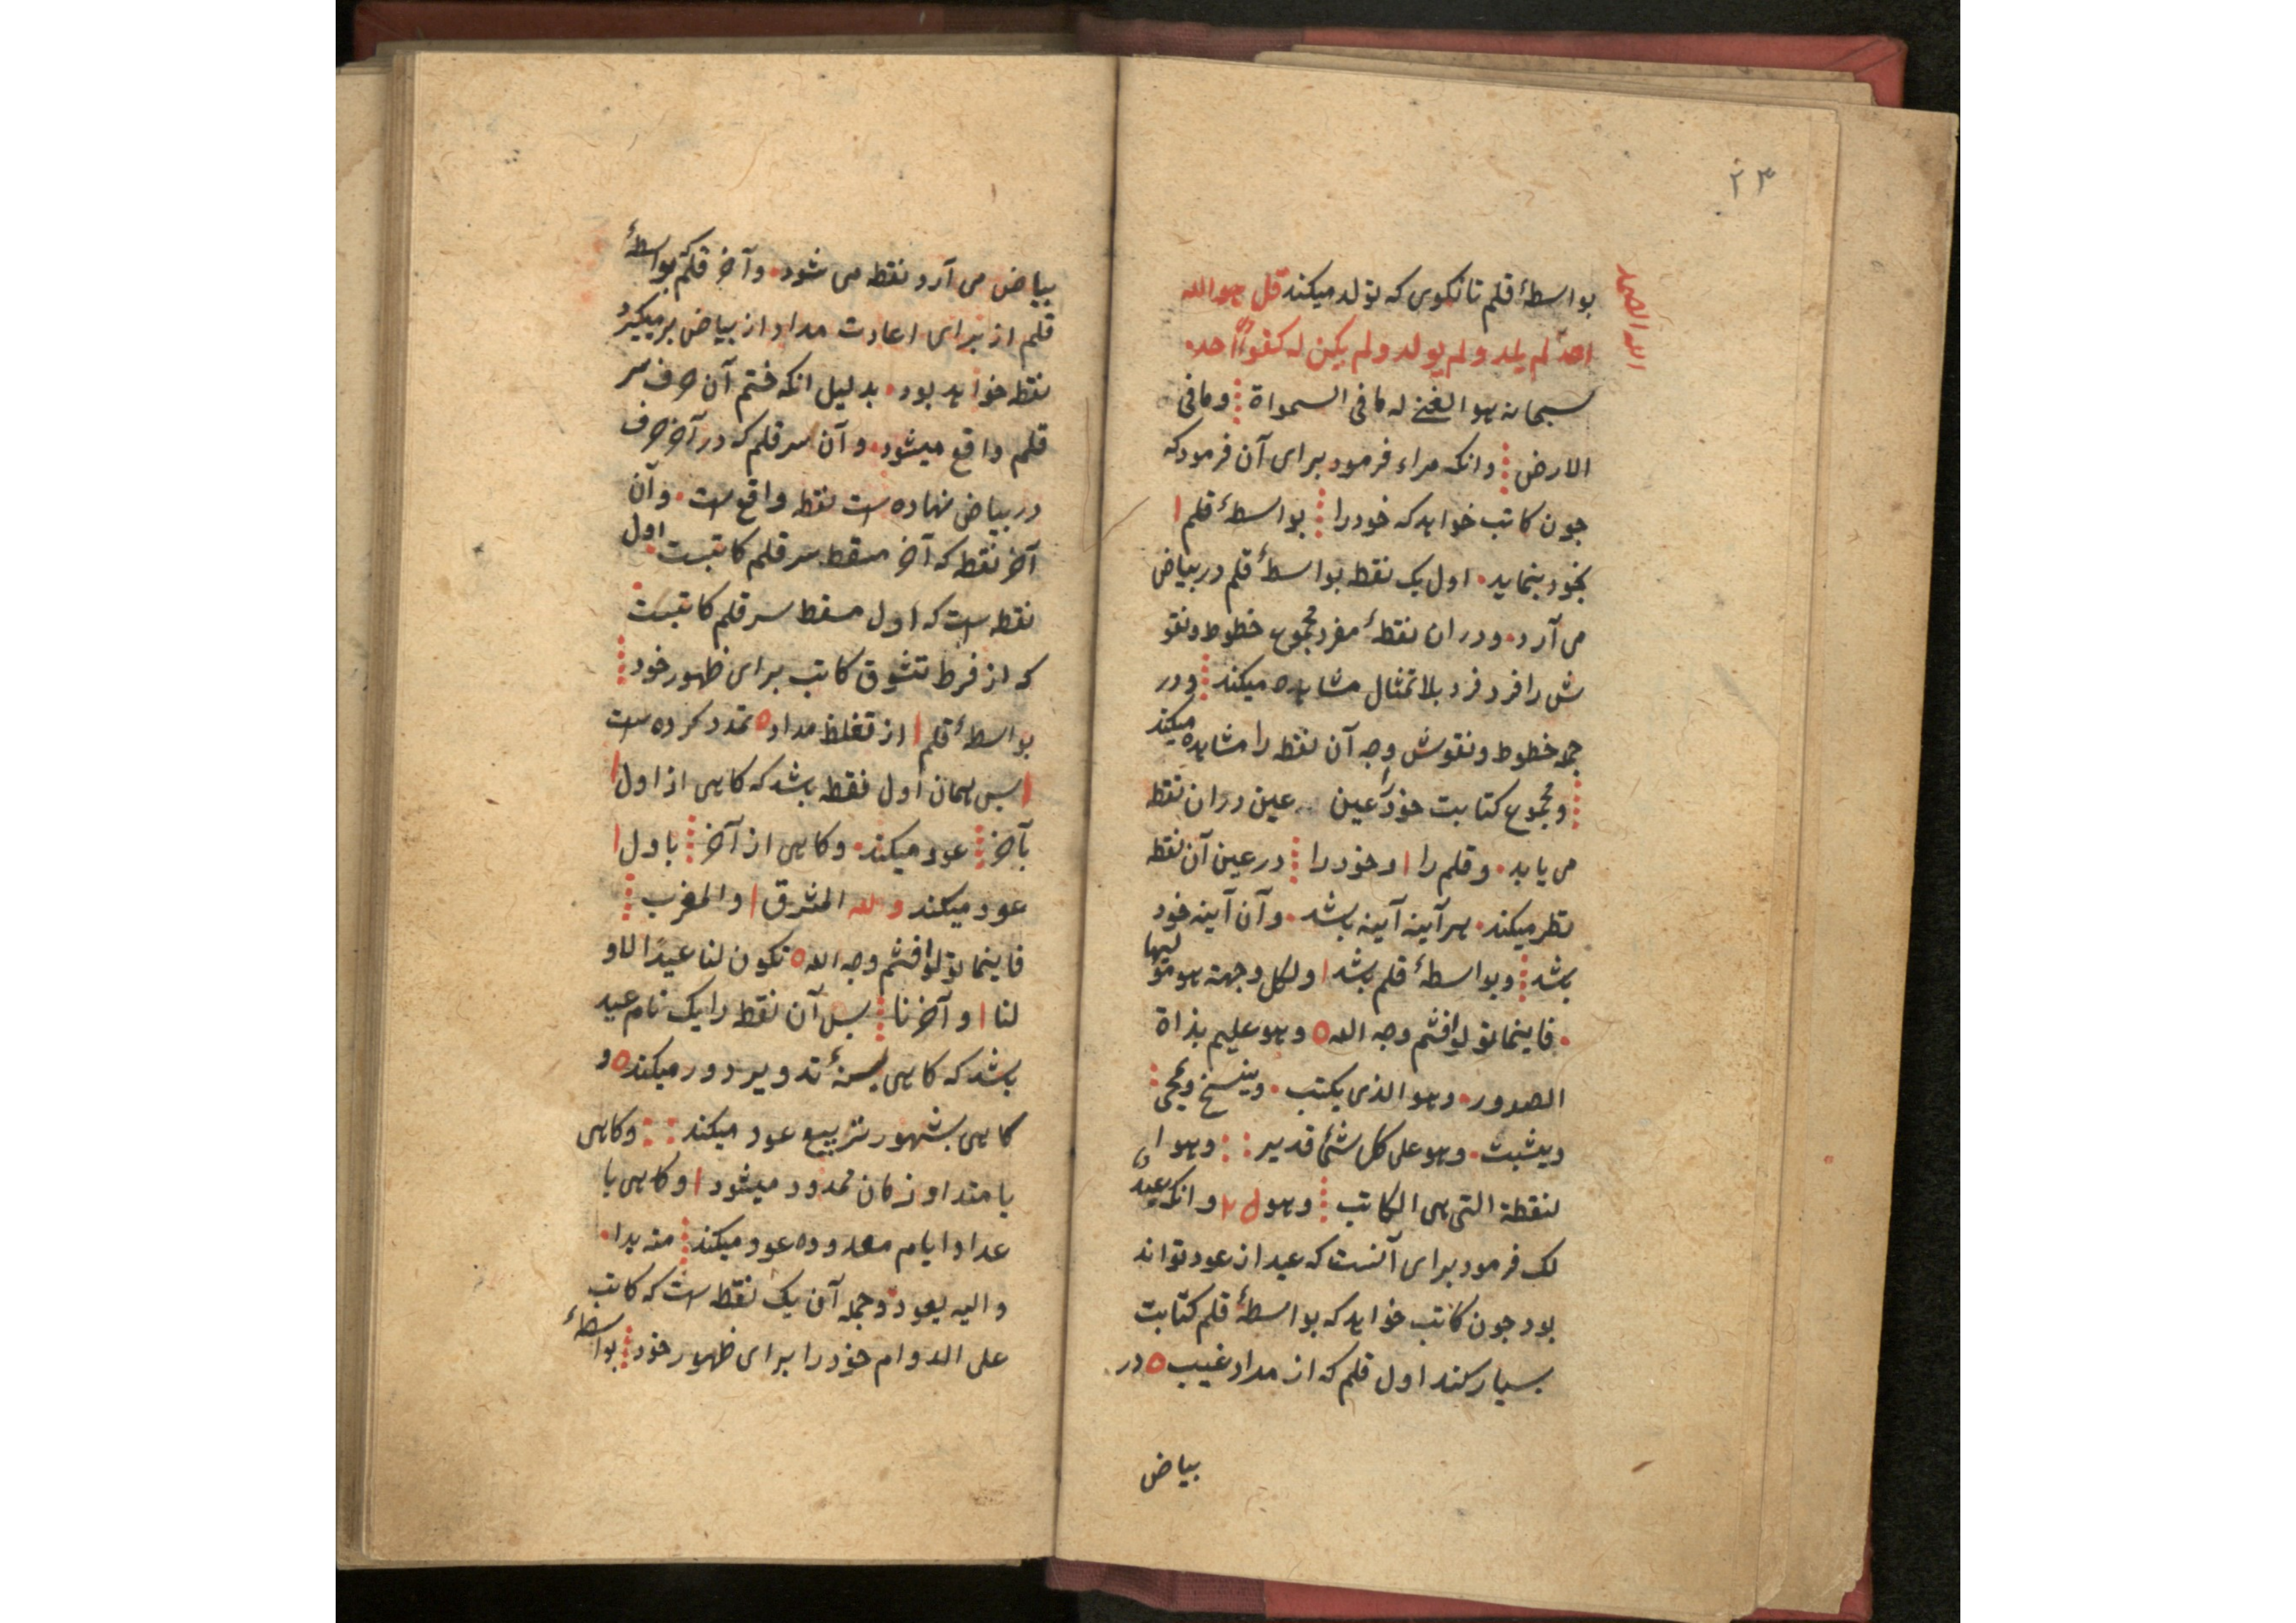 ۲۳
بواسطهٔ قلم تا نکوی که تولد میکند قل هو الله
الله الصمد
احد لم یلد ولم یولد ولم یکن له کفوا احد
سبحانه هو الغنی له مافی السمواة ومافی
الارض وانکه مراء فرمود برای آن فرمود که
جون کاتب خواهد که خود را بواسطهٔ قلم
بخود بنماید اول یک نقطه بواسطهٔ قلم در بیاض
می آرد ودران نقطهٔ مفرد مجموع خطوط ونقو
ش را فرد فرد بلا تمثال مشاهده میکند ودر
جمله خطوط ونقوش وجه آن نقطه را مشاهده میکند
ومجموع کتابت خود را عین عین دران نقطه
می یابد وقلم را وخود را در عین آن نقطه
نظر میکند هر آینه آینه باشد وآن آینه خود
باشد وبواسطهٔ قلم باشد ولکل وجهة هو مولیها
فاینما تولوا فثم وجه الله وهو علیم بذاة
الصدور وهو الذی یکتب وینسخ ویمحی
ویثبت وهو علی کل شئ قدیر وهو ا
لنقطة التی هی الکاتب وهو وانکه عید
لک فرمود برای آنست که عید از عود تواند
بود جون کاتب خواهد که بواسطهٔ قلم کتابت
بسیار کند اول قلم که از مداد غیب در
بیاض
بیاض می آرد نقطه می شود وآخر قلم که بواسطهٔ
قلم از برای اعادت مداد از بیاض بر میکیرد
نقطه خواهد بود بدلیل انکه ختم آن حرف سر
قلم واقع میشود وآن سر قلم که در آخر حرف
در بیاض نهاده است نقطه واقع است وآن
آخر نقطه که آخر مسقط سر قلم کاتبست اول
نقطه است که اول مسقط سر قلم کاتبست
که از فرط تشوق کاتب برای ظهور خود
بواسطهٔ قلم از مداد تمدد کرده است
بس همان اول نقطه باشد که کاهی از اول
بآخر عود میکند وکاهی از آخر باول
عود میکند ولله المشرق والمغرب
فاینما تولوا فثم وجه الله تکون لنا عیدا لاو
لنا وآخرنا بس آن نقطه را یک نام عید
باشد که کاهی تدویر دور میکند و
کاهی بشهور تربیع عود میکند وکاهی
بامتداد زمان ممدود میشود وکاهی با
عداد ایام معدوده عود میکند منه بدا
والیه یعود وجمله آن یک نقطه است که کاتب
علی الدوام خود را برای ظهور خود بواسطهٔ